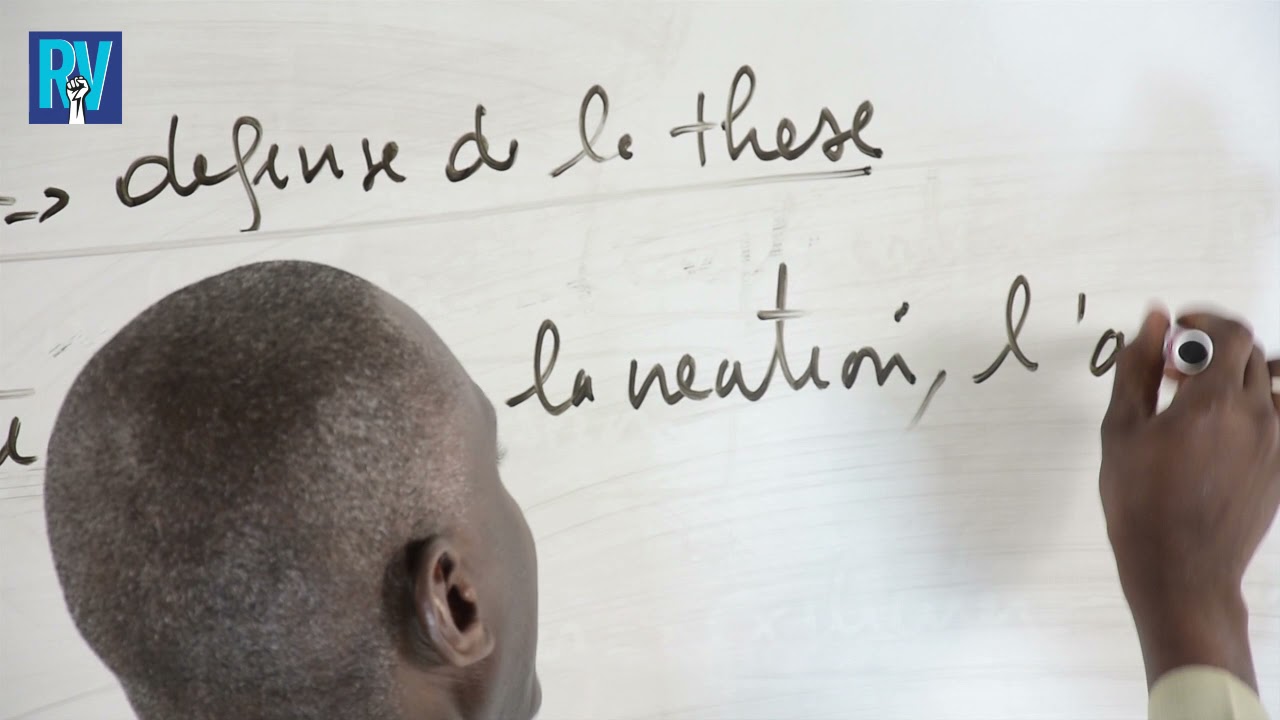 RV
=> defense de la these
la neation, l'a